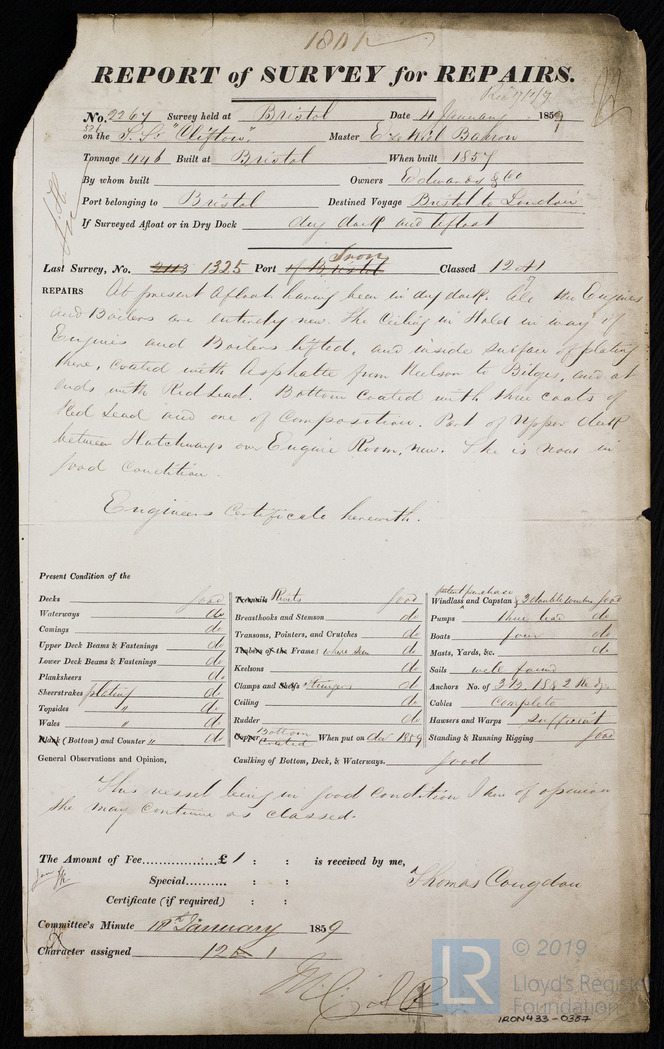 REPORT of SURVEY for REPAIRS.
No. 2267 Survey held at Bristol Date 4 January 1859
on the S.S. "Clifton" Master Barron
Tonnage 446 Built at Bristol When built 1857
By whom built Owners Edwards & Co
Port belonging to Bristol Destined Voyage Bristol to London
If Surveyed Afloat or in Dry Dock dry dock and afloat
Iron
Last Survey, No. 2113 1325 Port of Bristol Classed 12 A1
REPAIRS At present afloat having been in dry dock. All the Engines
and Boilers are entirely new. The Ceiling in Hold in way of
Engines and Boilers lifted, and inside surface of plating
there, coated with Asphalte from Keelson to Bilges, and at
ends with Red Lead. Bottom coated with three coats of
Red Lead and one of Composition. Part of Upper deck
between Hatchways over Engine Room, new. She is now in
good condition.
Engineers Certificate herewith.
Present Condition of the
Decks good
Waterways do
Comings do
Upper Deck Beams & Fastenings do
Lower Deck Beams & Fastenings do
Planksheers do
Sheerstrakes plating do
Topsides " do
Wales " do
Plank (Bottom) and Counter " do
Treenails Rivets good
Breasthooks and Stemson do
Transoms, Pointers, and Crutches do
Timbers of the Frames where seen do
Keelsons do
Clamps and Shelfs Stringers do
Ceiling do
Rudder do
Copper Bottom Coated When put on 1859
Caulking of Bottom, Deck, & Waterways. good
patent purchase
Windlass and Capstan & 3 double winches good
Pumps three lead do
Boats four do
Masts, Yards, &c. do
Sails well found
Anchors No. of 3 B. 1 S & 2 K
Cables complete
Hawsers and Warps sufficient
Standing & Running Rigging good
General Observations and Opinion,
This vessel being in good condition I am of opinion
she may continue as classed.
The Amount of Fee £ 1 : : is received by me,
Special : :
Thomas Congdon
Certificate (if required) : :
Committee's Minute January 1859
Character assigned 12 A 1
LR © 2019
Lloyd's Register
Foundation
IRON433-0357